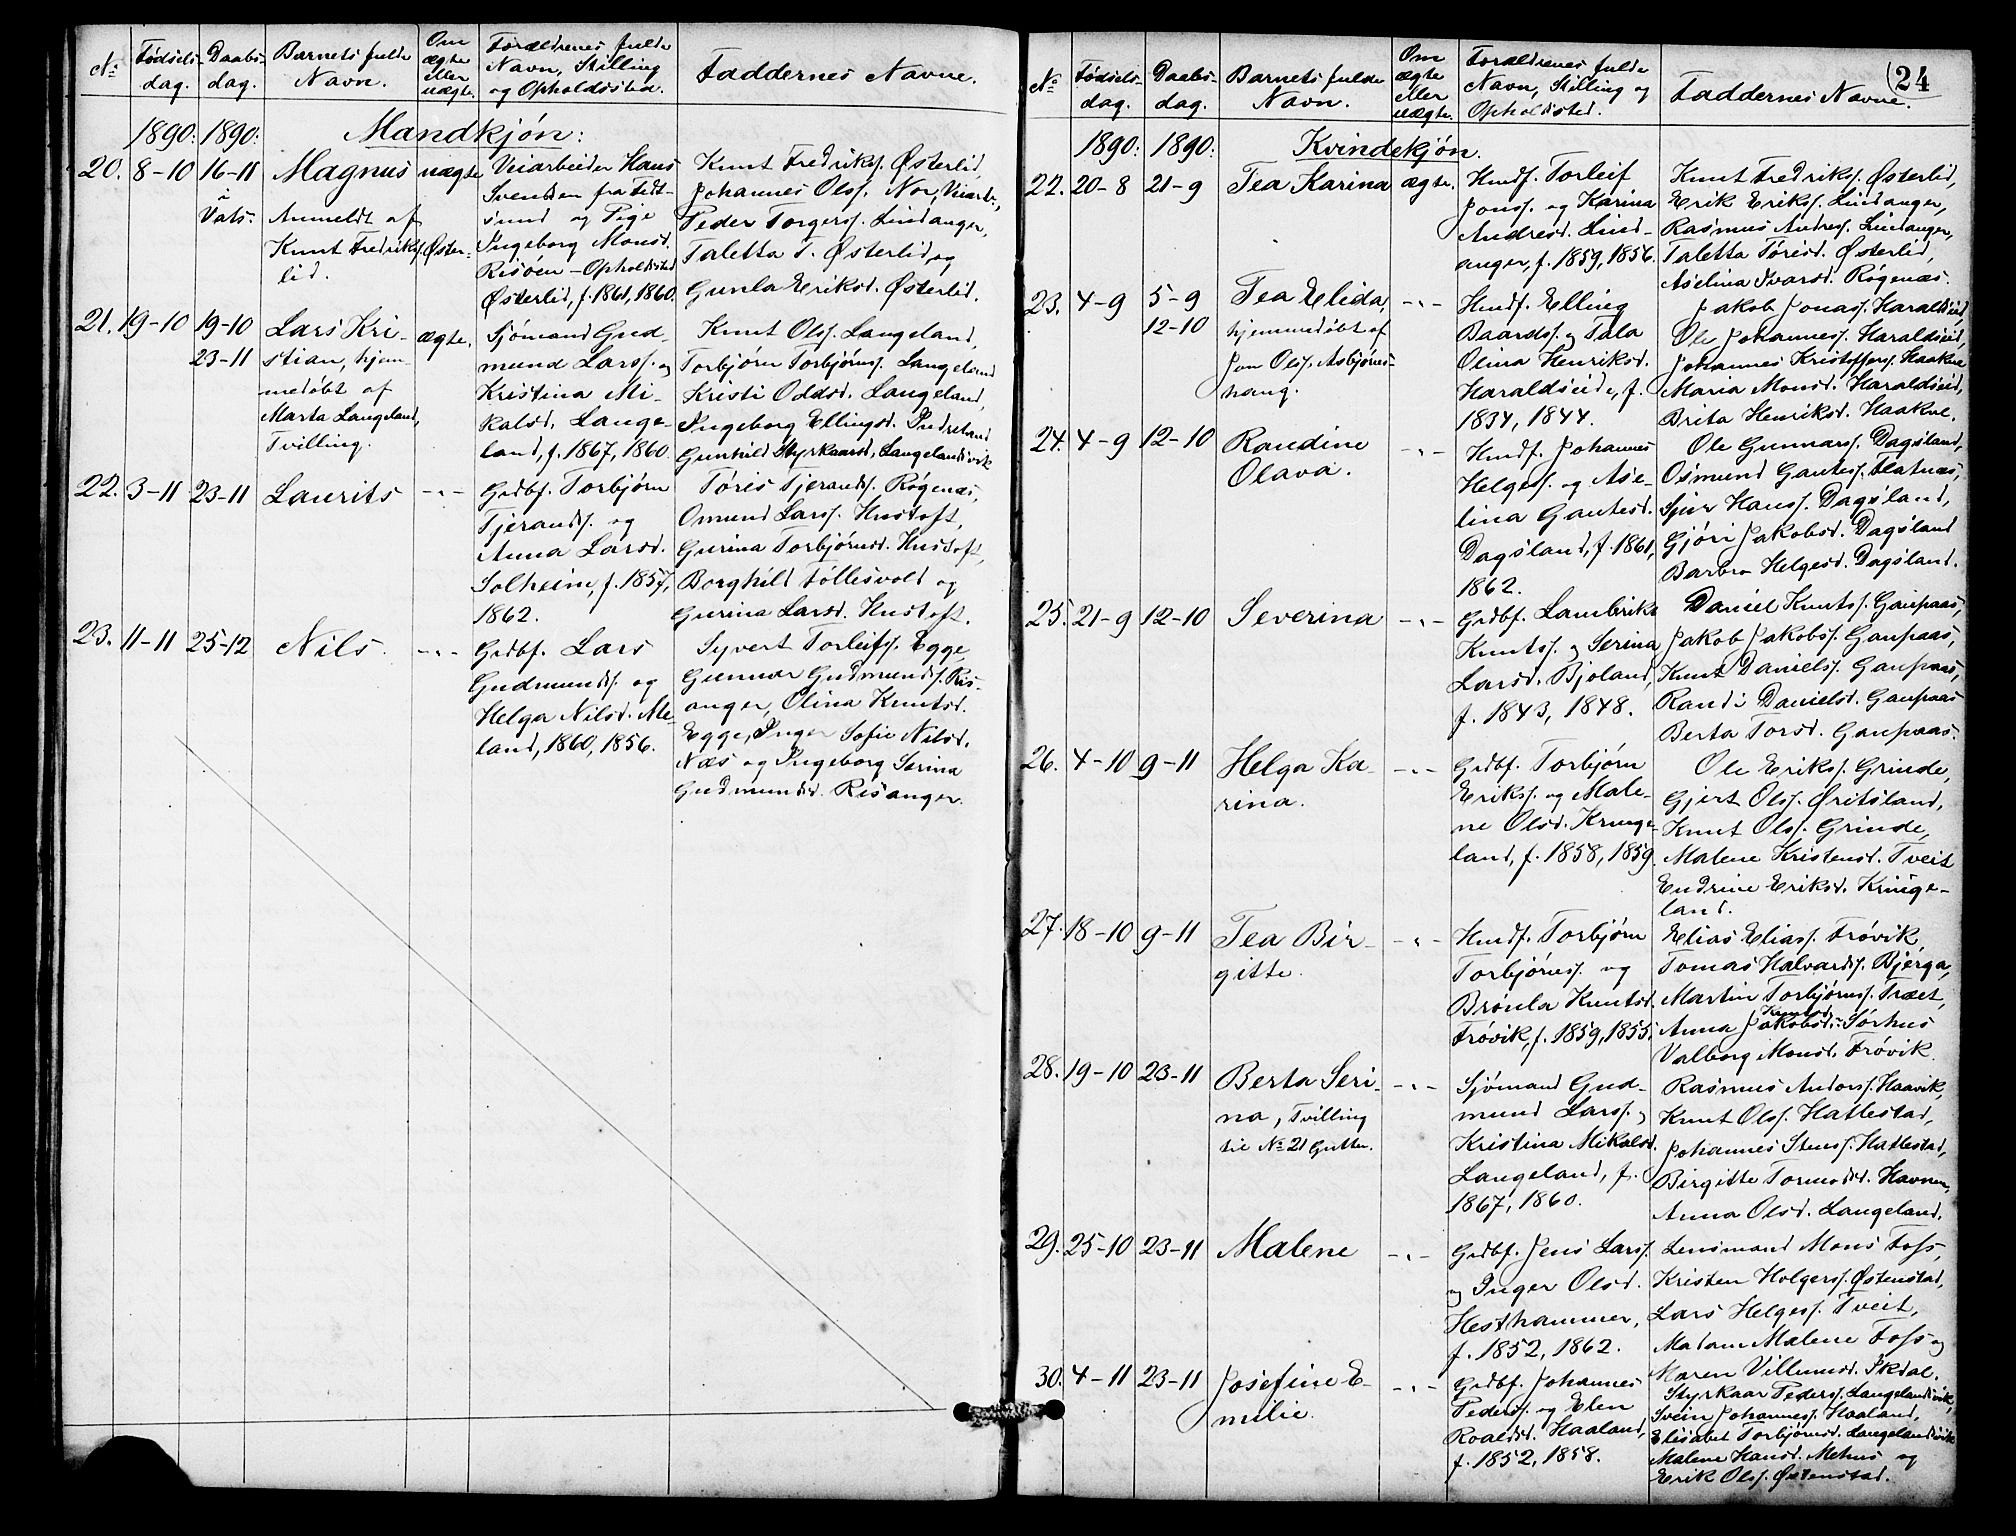 №
Fødsels-
dag.
Daabs-
dag.
Barnets fulde
Navn.
Om
ægte
eller
uægte.
Forældrenes fulde
Navn, Stilling
og Opholdssted.
Faddernes Navne.
1890: 1890: Mandkjøn:
20. 8-10 16-11
i
Vats.
Magnus
Anmeldt af
Knut Fredriks. Øster-
lid.
uægte
Veiarbeider Hans
Svendsen fra
sund og Pige
Ingeborg Monsd.
Risøen - Opholdssted
Østerlid, f. 1861, 1860.
Knut Fredriks. Østerlid,
Johannes Ols. Nor, Veiarb.,
Peder Torgers. Lindanger,
Taletta T. Østerlid og
Gunla Eriksd. Østerlid.
21. 19-10 19-10
23-11
Lars Kri-
stian, hjem-
medøbt af
Marta Langeland,
Tvilling.
ægte.
Sjømand Gud-
mund Larss. og
Kristina Mi-
kalsd. Lange-
land, f. 1867, 1860.
Knut Ols. Langeland,
Torbjørn Torbjørns. Langeland
Kristi Oddsd. Langeland,
Ingeborg Ellingsd. Indreland
Gunhild Styrkaarsd. Langelandsvik
22. 3-11 23-11 Laurits -"-
Grdbf. Torbjørn
Tjerands. og
Anna Larsd.
Solheim, f. 1857,
1862.
Tøris Tjerands. Røgenæs,
Omund Larss. Hustoft,
Gurina Torbjørnsd. Hustoft,
Borghild Føllesvold og
Gurina Larsd. Hustoft.
23. 11-11 25-12 Nils. -"-
Grdbf. Lars
Gudmunds. og
Helga Nilsd. Me-
land, 1860, 1856.
Syvert Torleifs. Egge,
Gunnar Gudmunds. Ris-
anger, Olina Knutsd.
Egge, Inger Sofie Nilsd.
Næs og Ingeborg Serina
Gudmundsd. Risanger.
24
№
Fødsels-
dag.
Daabs-
dag.
Barnets fulde
Navn.
Om
ægte
eller
uægte.
Forældrenes fulde
Navn, Stilling og
Opholdssted.
Faddernes Navne.
1890: 1890: Kvindekjøn.
22. 20-8 21-9 Tea Karina ægte.
Husf. Torleif
Jons. og Karina
Andresd. Lind-
anger, f. 1859, 1856.
Knut Fredriks. Østerlid,
Erik Eriks. Lindanger,
Rasmus Andres. Lindanger,
Taletta Tørisd. Østerlid,
Aselina Ivarsd. Røgenæs.
23. 4-9 5-9
12-10
Tea Elida,
hjemmedøbt af
Jon Ols. Asbjørns-
haug.
-"-
Husf. Elling
Baards. og Tala
Olina Henriksd.
Haraldseid, f.
1834, 1844.
Jakob Jonas. Haraldseid
Ole Johannes. Haraldseid,
Johannes Kristoffers. Haakne
Maria Monsd. Haraldseid,
Brita Henriksd. Haakne.
24. 4-9 12-10 Raudine
Olava.
-"-
Husf. Johannes
Helges. og Ase-
lina Gautesd.
Dagsland, f. 1861,
1862.
Ole Gunnars. Dagsland,
Osmund Gautes. Flatnæs,
Sjur Hans. Dagsland,
Gjøri Jakobsd. Dagsland
Barbro Helgesd. Dagsland.
25. 21-9 12-10 Severina -"-
Grdbf. Lambrikt
Knuts. og Serina
Larsd. Bjoland,
f. 1843, 1848.
Daniel Knuts. Gaupaas,
Jakob Jakobs. Gaupaas,
Knut Daniels. Gaupaas,
Randi Danielsd. Gaupaas
Berta Torsd. Gaupaas.
26. 4-10 9-11 Helga Ka-
rina.
-"-
Grdbf. Torbjørn
Eriks. og Male-
ne Olsd. Krunge-
land, f. 1858, 1859.
Ole Eriks. Grinde,
Gjert Ols. Øritsland,
Knut Ols. Grinde,
Malene Kristensd. Tveit
Endrine Eriksd. Krünge-
land.
27. 18-10 9-11 Tea Bir-
gitte.
-"-
Husf. Torbjørn
Torbjørns. og
Brønla Knutsd.
Frøvik, f. 1859, 1855.
Elias Elias. Frøvik,
Tomas Halvards. Bjerga,
Martin Torbjørns. Træet,
Knutsd.
Anna Jakobsd. Sørhus
Valborg Monsd. Frøvik.
28. 19-10 23-11 Berta Seri-
na, Tvilling
til № 21 Gutter.
-"-
Sjømand Gud-
mund Larss. og
Kristina Mikalsd.
Langeland, f.
1867, 1860.
Rasmus Andors. Haavik,
Knut Ols. Hatlestad,
Johannes Stens. Hatlestad,
Birgitte Tormodsd. Havnen,
Anna Olsd. Langeland.
29. 25-10 23-11 Malene -"-
Grdbf. Jens Larss.
og Inger Olsd.
Hesthammer,
f. 1852, 1862.
Lensmand Mons Foss,
Kristen Holgers. Østenstad,
Lars Helges. Tveit,
Madam Malene Foss og
Maren Villumsd. Ikdal.
30. 4-11 23-11 Josefine E-
milie.
-"-
Grdbf. Johannes
Peders. og Elen
Roaldsd. Haaland,
f. 1852, 1858.
Styrkaar Peders. Langelandsvik,
Svein Johannes. Haaland,
Elisabet Torbjørnsd. Langelandsvik
Malene Hansd. Mehus og
Erik Ols. Østenstad.